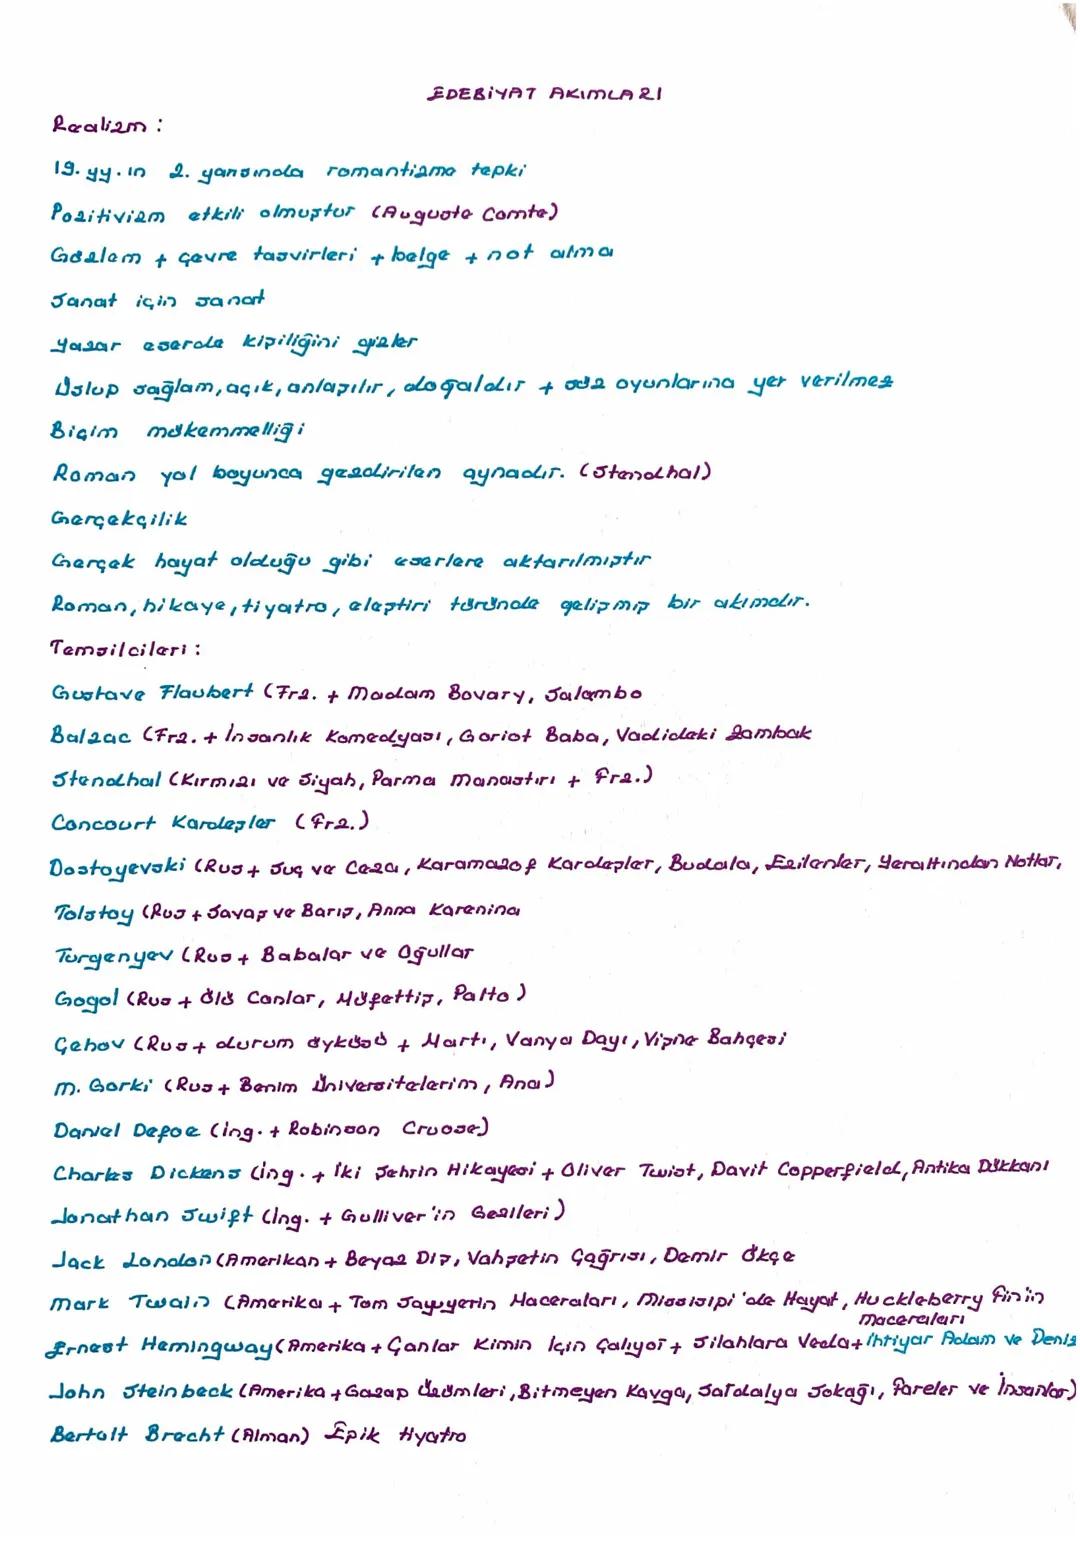 EDEBİYAT AKIMLARI
Realizm :
19. yy. ın 2. yarısında romantizme tepki
Pozitivizm etkili olmuştur (Auguste Comte)
Gözlem + çevre tasvirleri + belge + not alma
Sanat için sanat
Yazar eserde kişiliğini gizler
Üslup sağlam, açık, anlaşılır, doğaldır + söz oyunlarına yer verilmez
Biçim mükemmelliği
Roman yol boyunca gezdirilen aynadır. (Stendhal)
Gerçekçilik
Gerçek hayat olduğu gibi eserlere aktarılmıştır
Roman, hikaye, tiyatro, eleştiri türünde gelişmiş bir akımdır.
Temsilcileri :
Gustave Flaubert (Frz. + Madam Bovary, Salambo
Balzac (Frz. + İnsanlık Komedyası, Goriot Baba, Vadideki Zambak
Stendhal (Kırmızı ve Siyah, Parma Manastırı + Frz.)
Concourt Kardeşler (Frz.)
Dostoyevski (Rus + Suç ve Ceza, Karamazof Kardeşler, Budala, Ezilenler, Yeraltından Notlar,
Tolstoy (Rus + Savaş ve Barış, Anna Karenina
Turgenyev (Rus + Babalar ve Oğullar
Gogol (Rus + Ölü Canlar, Müfettiş, Palto)
Çehov (Rus + durum öyküsü + Martı, Vanya Dayı, Vişne Bahçesi
M. Gorki (Rus + Benim Üniversitelerim, Ana)
Daniel Defoe (İng. + Robinson Cruose)
Charles Dickens (İng. + İki Şehrin Hikayesi + Oliver Twist, Davit Copperfield, Antika Dükkanı
Jonathan Swift (İng. + Gulliver'in Gezileri)
Jack London (Amerikan + Beyaz Diş, Vahşetin Çağrısı, Demir Ökçe
Mark Twain (Amerika + Tom Sawyerin Maceraları, Missisipi'de Hayat, Huckleberry Fin'in
Maceraları
Ernest Hemingway (Amerika + Çanlar Kimin İçin Çalıyor + Silahlara Veda + İhtiyar Adam ve Deniz
John Steinbeck (Amerika + Gazap Üzümleri, Bitmeyen Kavga, Sardalya Sokağı, Fareler ve İnsanlar)
Bertolt Brecht (Alman) Epik tiyatro